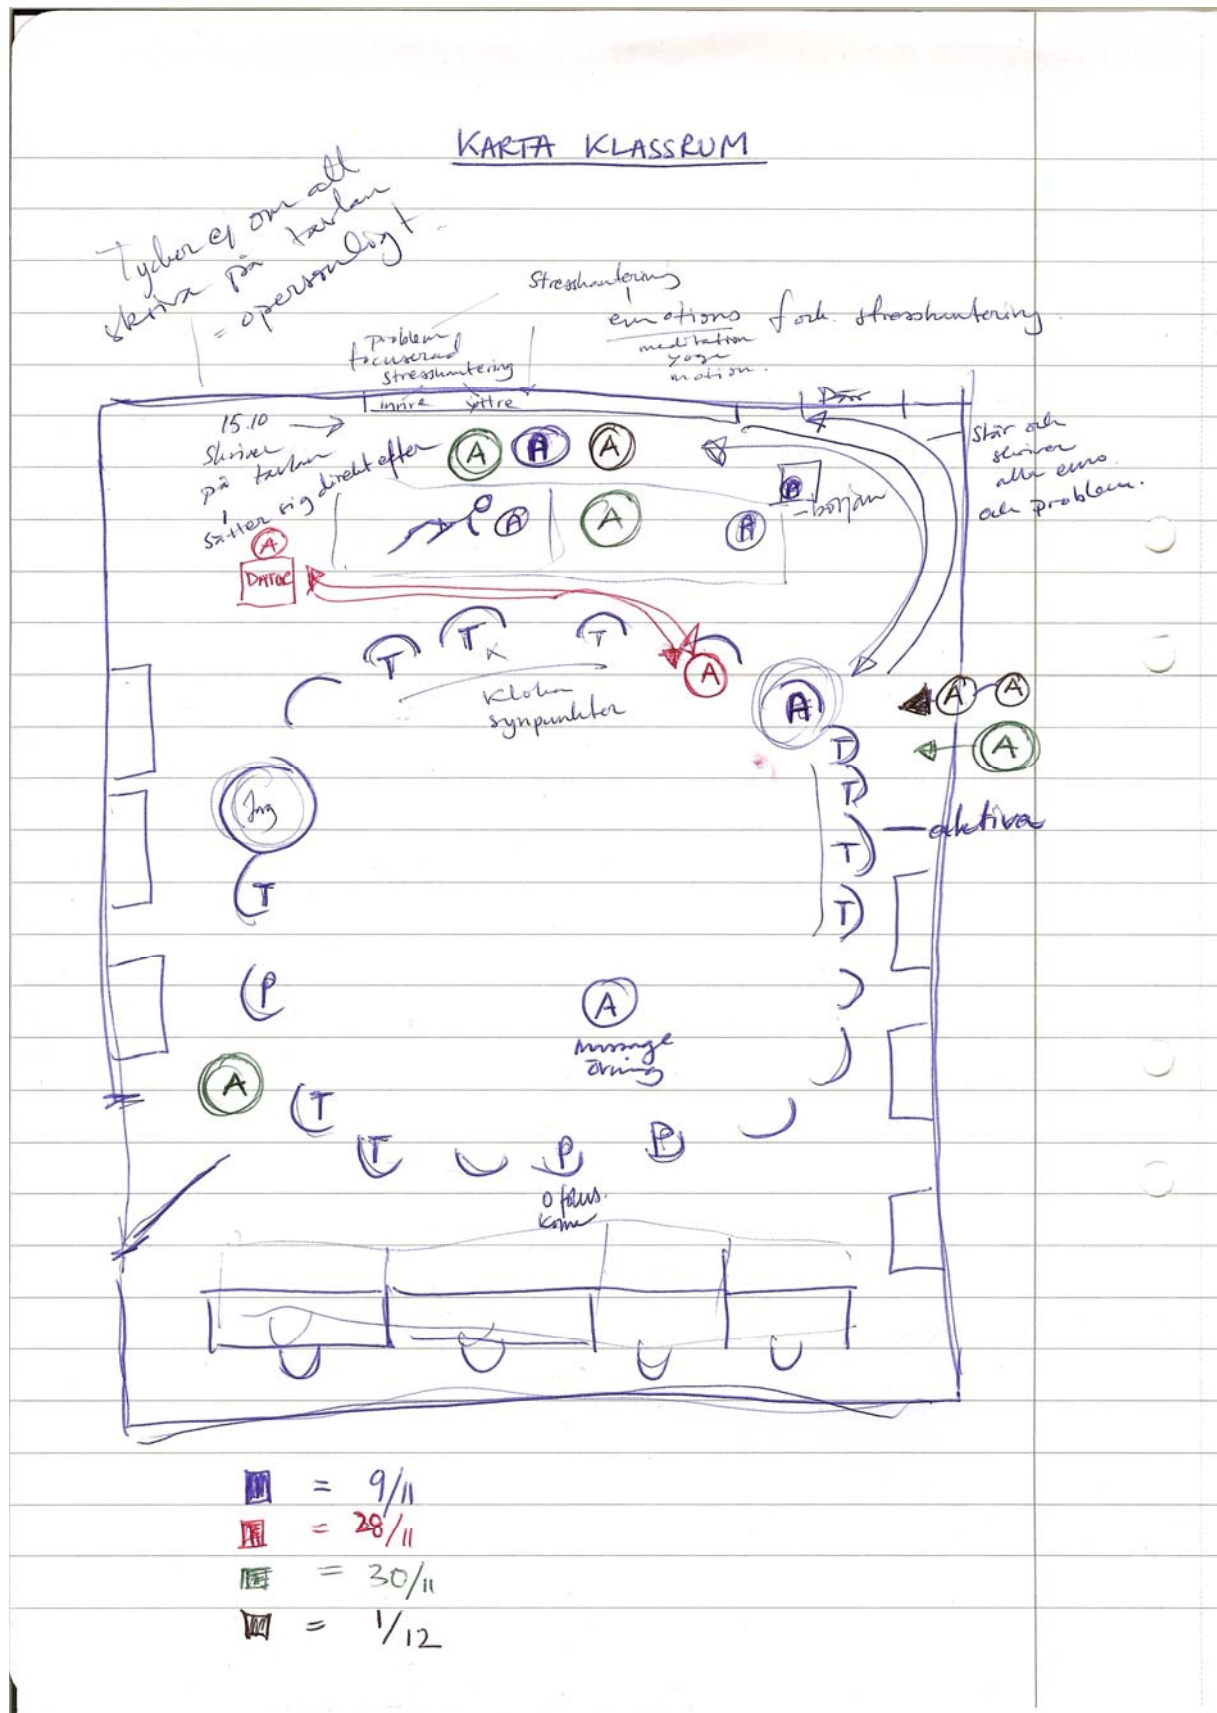 KARTA KLASSRUM
Tycker ej om att
skriva på tavlan
= opersonligt
Stresshantering
emotions fock. stresshantering
meditation
yoga
motion.
Problem
focuserad
stresshantering
inrire yttre
Dörr
15.10 →
Skriver
på tavlan
sätter sig direkt efter
Står och
skriver
alla emo
och problem.
A A A
A
- början
A A A
A
DATOR
T T T
A
Kloka
synpunkter
A
A A
A
T
T
T
T
aktiva
Jag
T
P
A
massage
övning
A
T
T
P
P
= 9/11
= 28/11
= 30/11
= 1/12